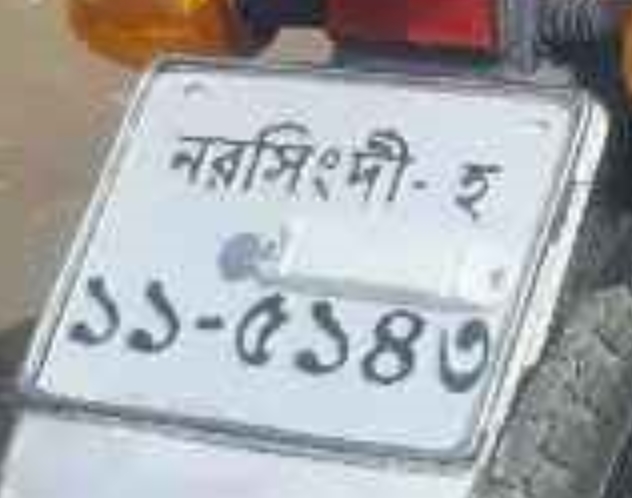 নরসিংদী- হ
১১-৫১৪৩